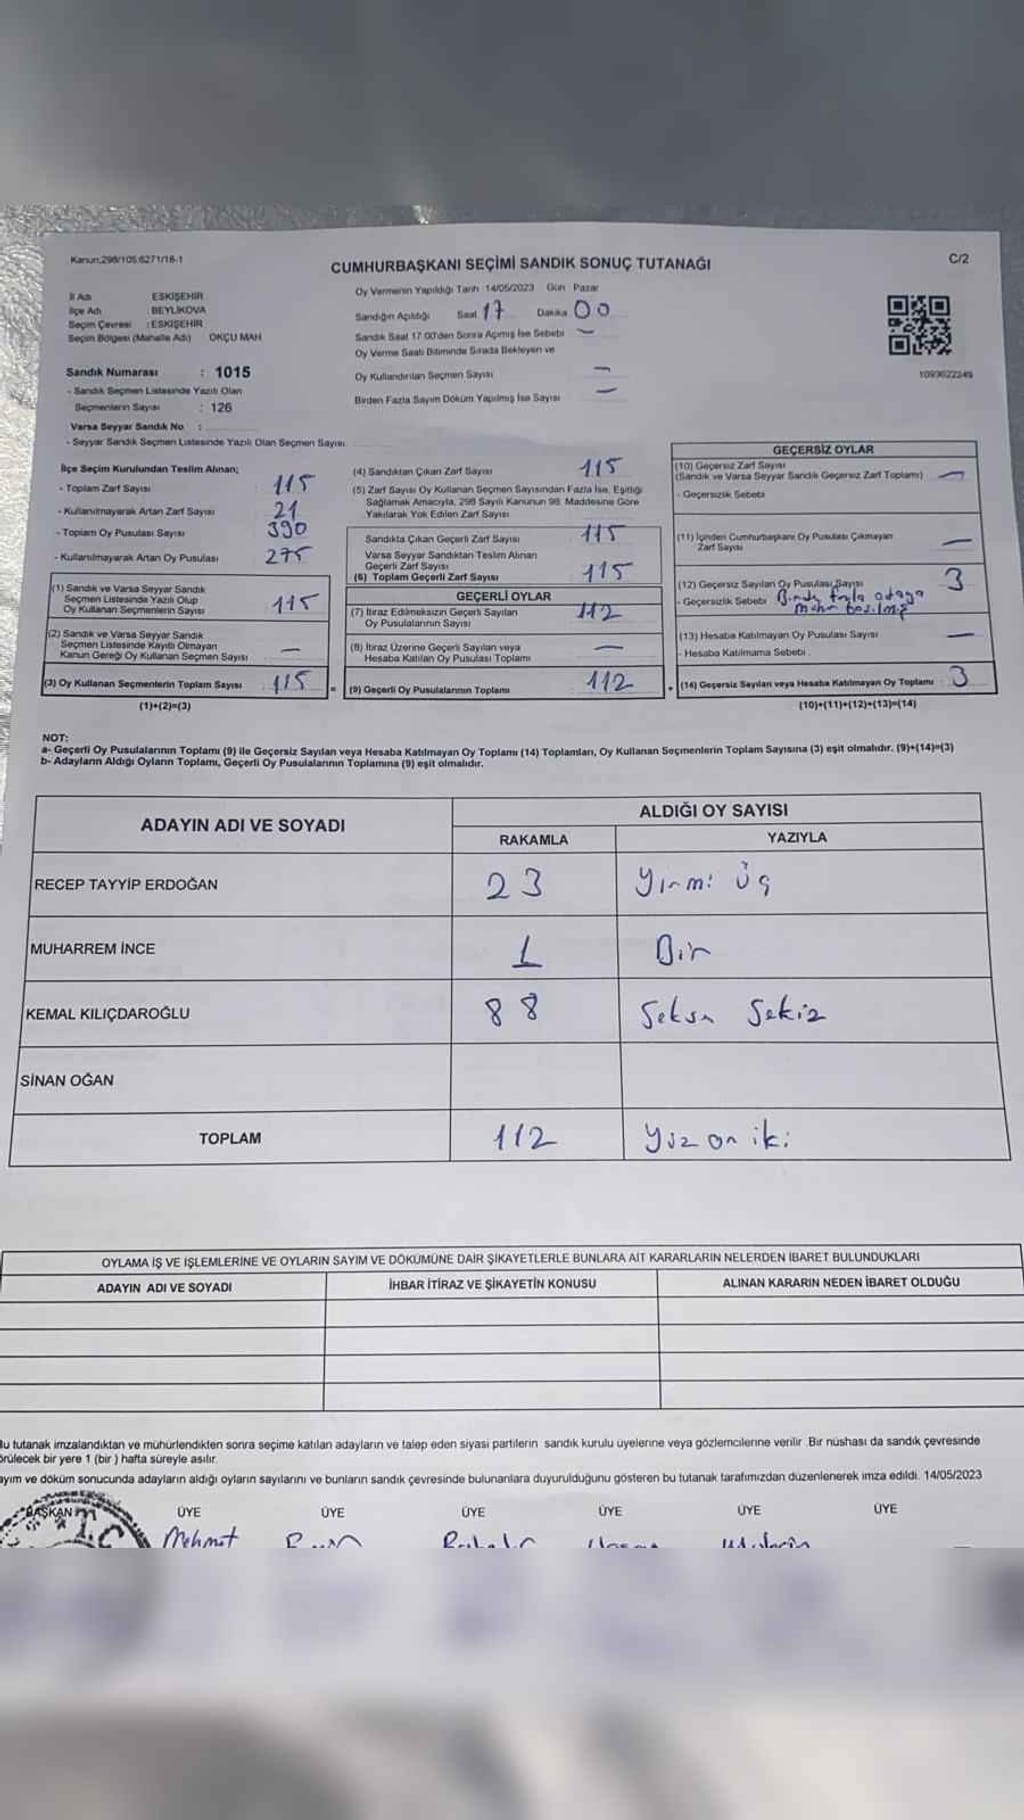 Kanun:298/105;6271/18-1
C/2
CUMHURBAŞKANI SEÇİMİ SANDIK SONUÇ TUTANAĞI
İl Adı ESKİŞEHİR
İlçe Adı BEYLİKOVA
Seçim Çevresi : ESKİŞEHİR
Seçim Bölgesi (Mahalle Adı) OKÇU MAH
Oy Vermenin Yapıldığı Tarih 14/05/2023 Gün Pazar
Sandığın Açıldığı Saat 17 Dakika 00
Sandık Saat 17.00'den Sonra Açımış İse Sebebi —
Oy Verme Saati Bitiminde Sırada Bekleyen ve
Oy Kullandırılan Seçmen Sayısı —
Birden Fazla Sayım Döküm Yapılmış İse Sayısı —
1093622249
Sandık Numarası : 1015
- Sandık Seçmen Listesinde Yazılı Olan
Seçmenlerin Sayısı : 126
Varsa Seyyar Sandık No :
- Seyyar Sandık Seçmen Listesinde Yazılı Olan Seçmen Sayısı
İlçe Seçim Kurulundan Teslim Alınan;
- Toplam Zarf Sayısı 115
- Kullanılmayarak Artan Zarf Sayısı 21
- Toplam Oy Pusulası Sayısı 390
- Kullanılmayarak Artan Oy Pusulası 275
(1) Sandık ve Varsa Seyyar Sandık
Seçmen Listesinde Yazılı Olup
Oy Kullanan Seçmenlerin Sayısı 115
(2) Sandık ve Varsa Seyyar Sandık
Seçmen Listesinde Kayıtlı Olmayan
Kanun Gereği Oy Kullanan Seçmen Sayısı —
(3) Oy Kullanan Seçmenlerin Toplam Sayısı 115
(1)+(2)=(3)
(4) Sandıktan Çıkan Zarf Sayısı 115
(5) Zarf Sayısı Oy Kullanan Seçmen Sayısından Fazla İse, Eşitliği
Sağlamak Amacıyla, 298 Sayılı Kanunun 98. Maddesine Göre
Yakılarak Yok Edilen Zarf Sayısı
Sandıkta Çıkan Geçerli Zarf Sayısı 115
Varsa Seyyar Sandıktan Teslim Alınan
Geçerli Zarf Sayısı
(6) Toplam Geçerli Zarf Sayısı 115
GEÇERLİ OYLAR
(7) İtiraz Edilmeksizin Geçerli Sayılan
Oy Pusulalarının Sayısı 112
(8) İtiraz Üzerine Geçerli Sayılan veya
Hesaba Katılan Oy Pusulası Toplamı —
= (9) Geçerli Oy Pusulalarının Toplamı 112
GEÇERSİZ OYLAR
(10) Geçersiz Zarf Sayısı
(Sandık ve Varsa Seyyar Sandık Geçersiz Zarf Toplamı) —
- Geçersizlik Sebebi
(11) İçinden Cumhurbaşkanı Oy Pusulası Çıkmayan
Zarf Sayısı —
(12) Geçersiz Sayılan Oy Pusulası Sayısı 3
- Geçersizlik Sebebi Birden fazla adaya
mühür basılmış
(13) Hesaba Katılmayan Oy Pusulası Sayısı —
- Hesaba Katılmama Sebebi .
+ (14) Geçersiz Sayılan veya Hesaba Katılmayan Oy Toplamı 3
(10)+(11)+(12)+(13)=(14)
NOT:
a- Geçerli Oy Pusulalarının Toplamı (9) ile Geçersiz Sayılan veya Hesaba Katılmayan Oy Toplamı (14) Toplamları, Oy Kullanan Seçmenlerin Toplam Sayısına (3) eşit olmalıdır. (9)+(14)=(3)
b- Adayların Aldığı Oyların Toplamı, Geçerli Oy Pusulalarının Toplamına (9) eşit olmalıdır.
ADAYIN ADI VE SOYADI
ALDIĞI OY SAYISI
RAKAMLA YAZIYLA
RECEP TAYYİP ERDOĞAN 23 Yirmi üç
MUHARREM İNCE 1 Bir
KEMAL KILIÇDAROĞLU 88 Seksn Sekiz
SİNAN OĞAN
TOPLAM 112 Yüz on iki
OYLAMA İŞ VE İŞLEMLERİNE VE OYLARIN SAYIM VE DÖKÜMÜNE DAİR ŞİKAYETLERLE BUNLARA AİT KARARLARIN NELERDEN İBARET BULUNDUKLARI
ADAYIN ADI VE SOYADI İHBAR İTİRAZ VE ŞİKAYETİN KONUSU ALINAN KARARIN NEDEN İBARET OLDUĞU
Bu tutanak imzalandıktan ve mühürlendikten sonra seçime katılan adayların ve talep eden siyasi partilerin sandık kurulu üyelerine veya gözlemcilerine verilir. Bir nüshası da sandık çevresinde
örülecek bir yere 1 (bir ) hafta süreyle asılır.
ayım ve döküm sonucunda adayların aldığı oyların sayılarını ve bunların sandık çevresinde bulunanlara duyurulduğunu gösteren bu tutanak tarafımızdan düzenlenerek imza edildi. 14/05/2023
BAŞKAN ÜYE ÜYE ÜYE ÜYE ÜYE ÜYE
T.C
Mehmet